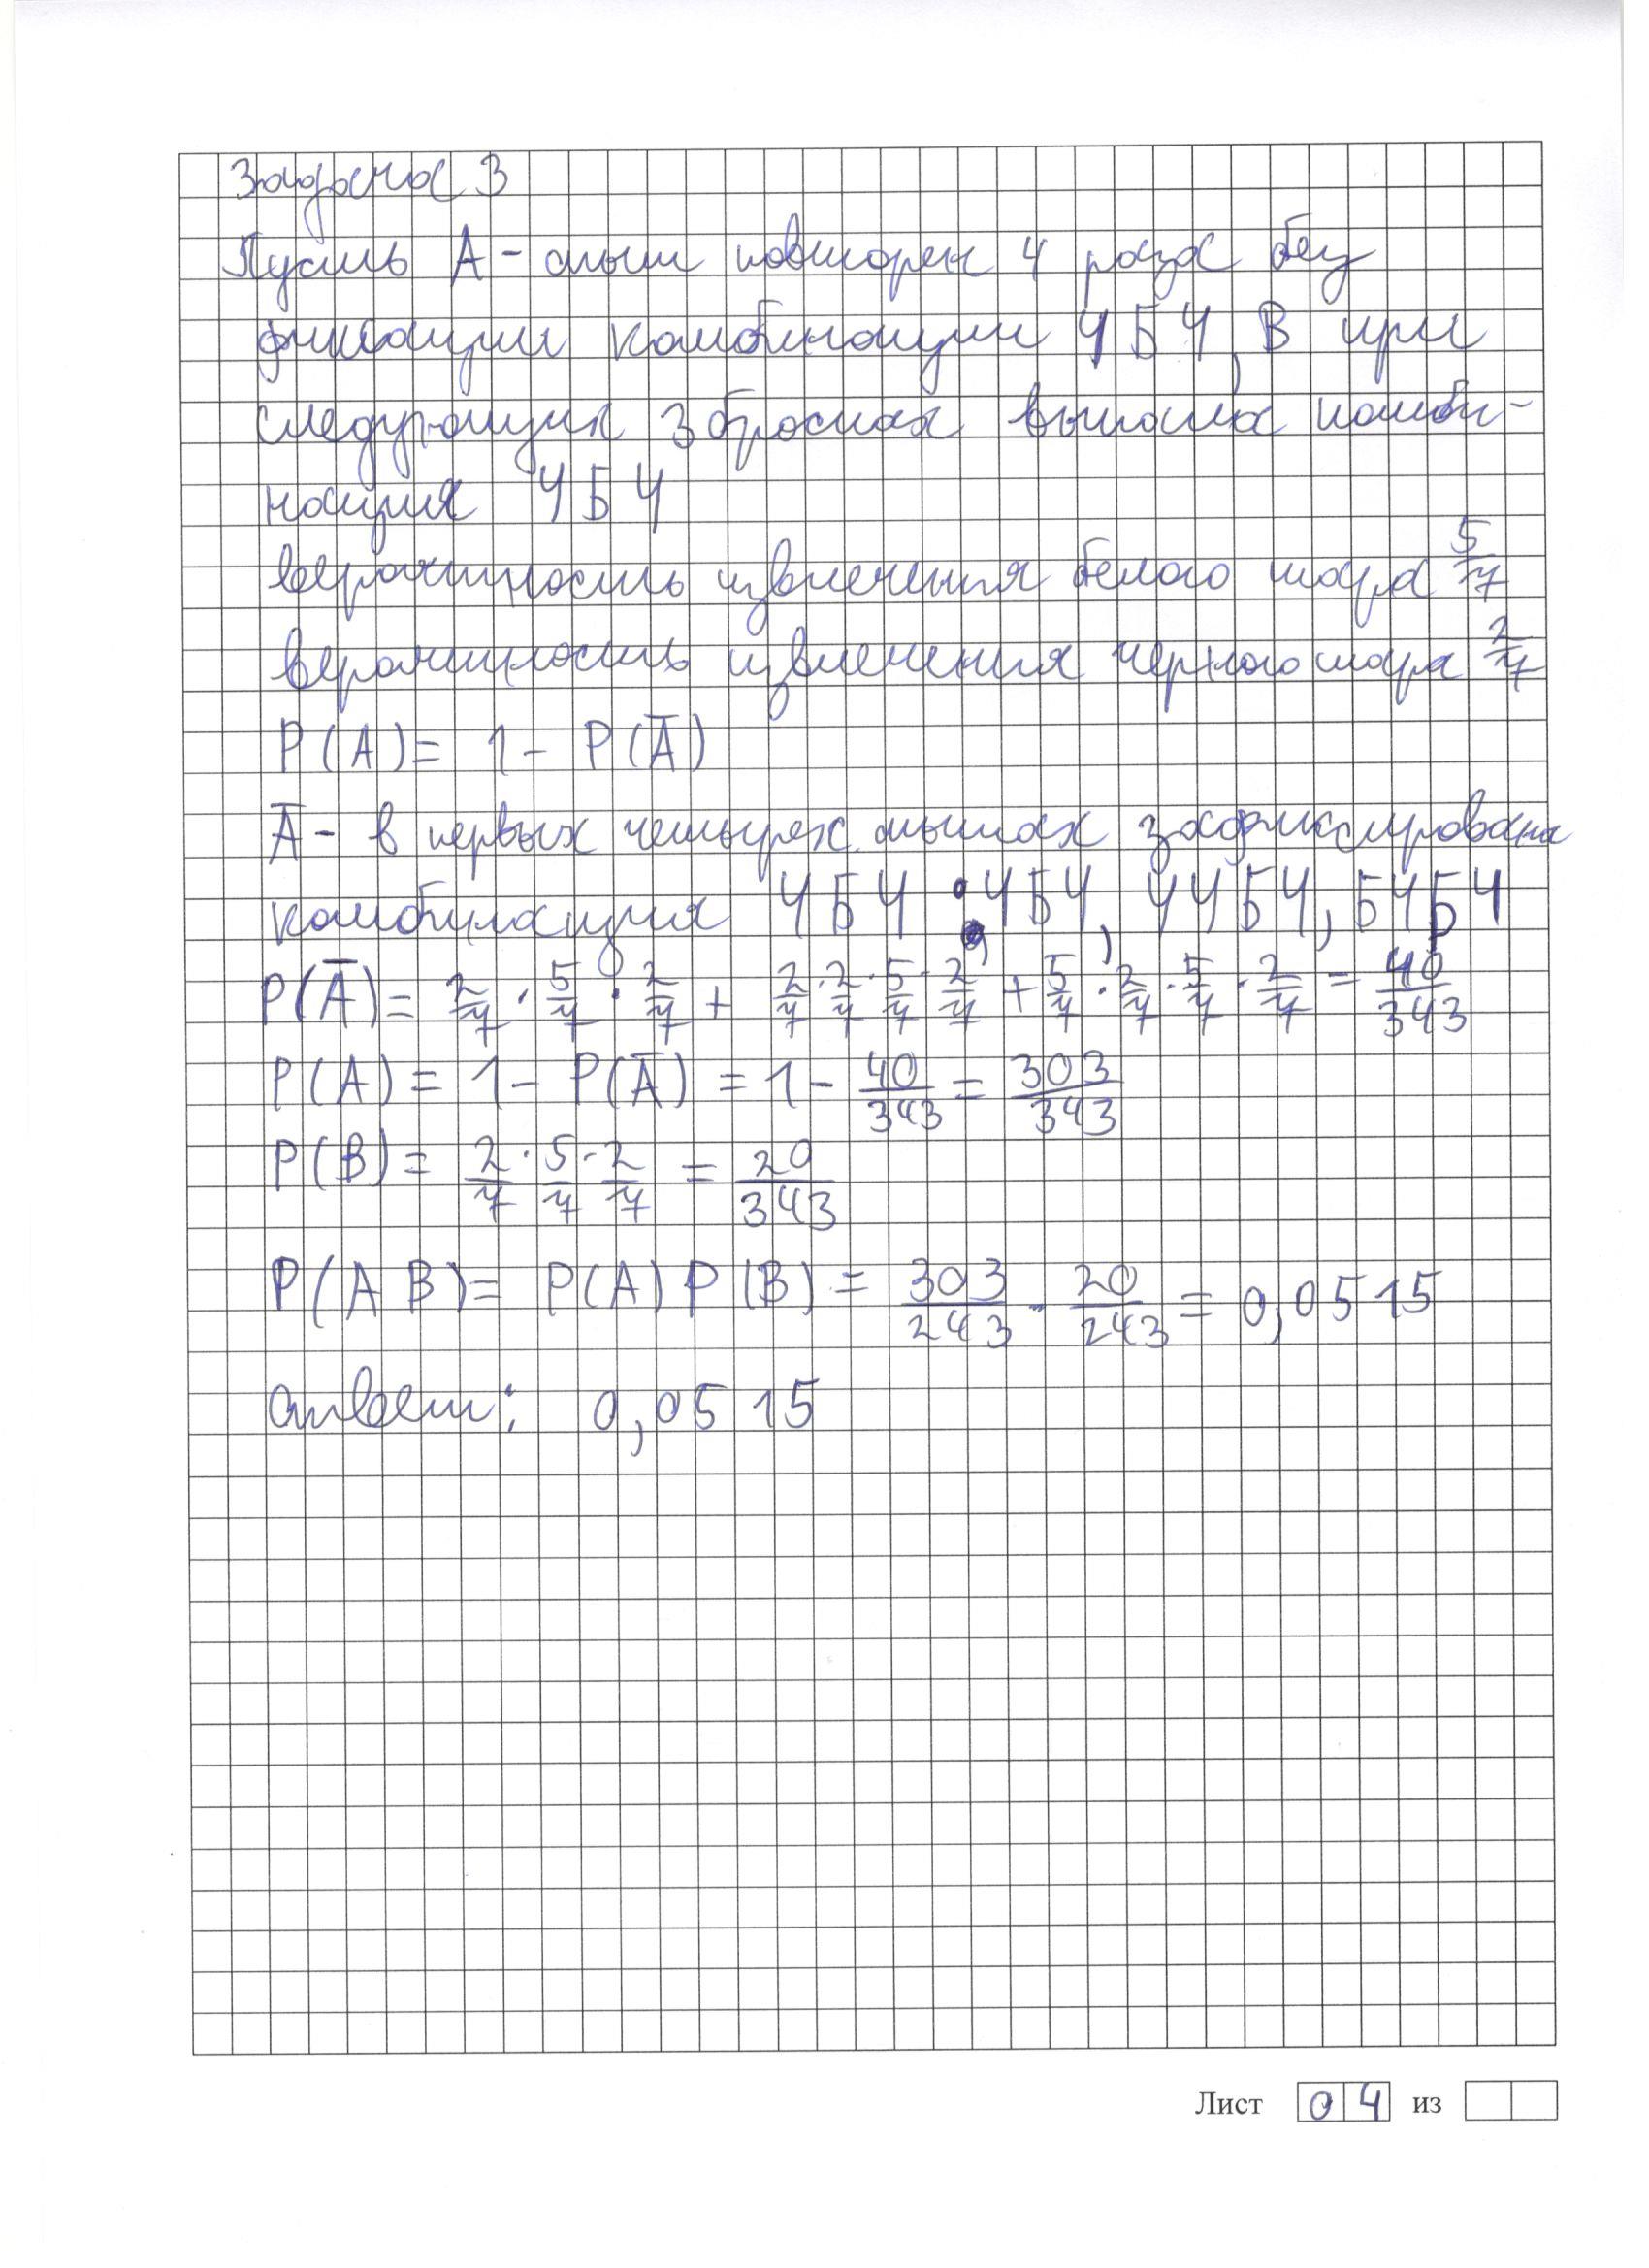 Задача 3
Пусть A - опыт повторен 4 раза без
фиксации комбинации ЧБЧ, B при
следующих 3 бросках выпала комби-
нация ЧБЧ
вероятность извлечения белого шара 5/7
вероятность извлечения черного шара 2/7
P(A) = 1 - P(Ā)
Ā - в первых четырех опытах зафиксирована
комбинация ЧБЧ : ЧБЧ, ЧЧБЧ, БЧБЧ
P(Ā) = 2/7 · 5/7 · 2/7 + 2/7 · 2/7 · 5/7 · 2/7 + 5/7 · 2/7 · 5/7 · 2/7 = 40/343
P(A) = 1 - P(Ā) = 1 - 40/343 = 303/343
P(B) = 2/7 · 5/7 · 2/7 = 20/343
P(AB) = P(A) P(B) = 303/243 · 20/243 = 0,0515
ответ: 0,0515
Лист 04 из